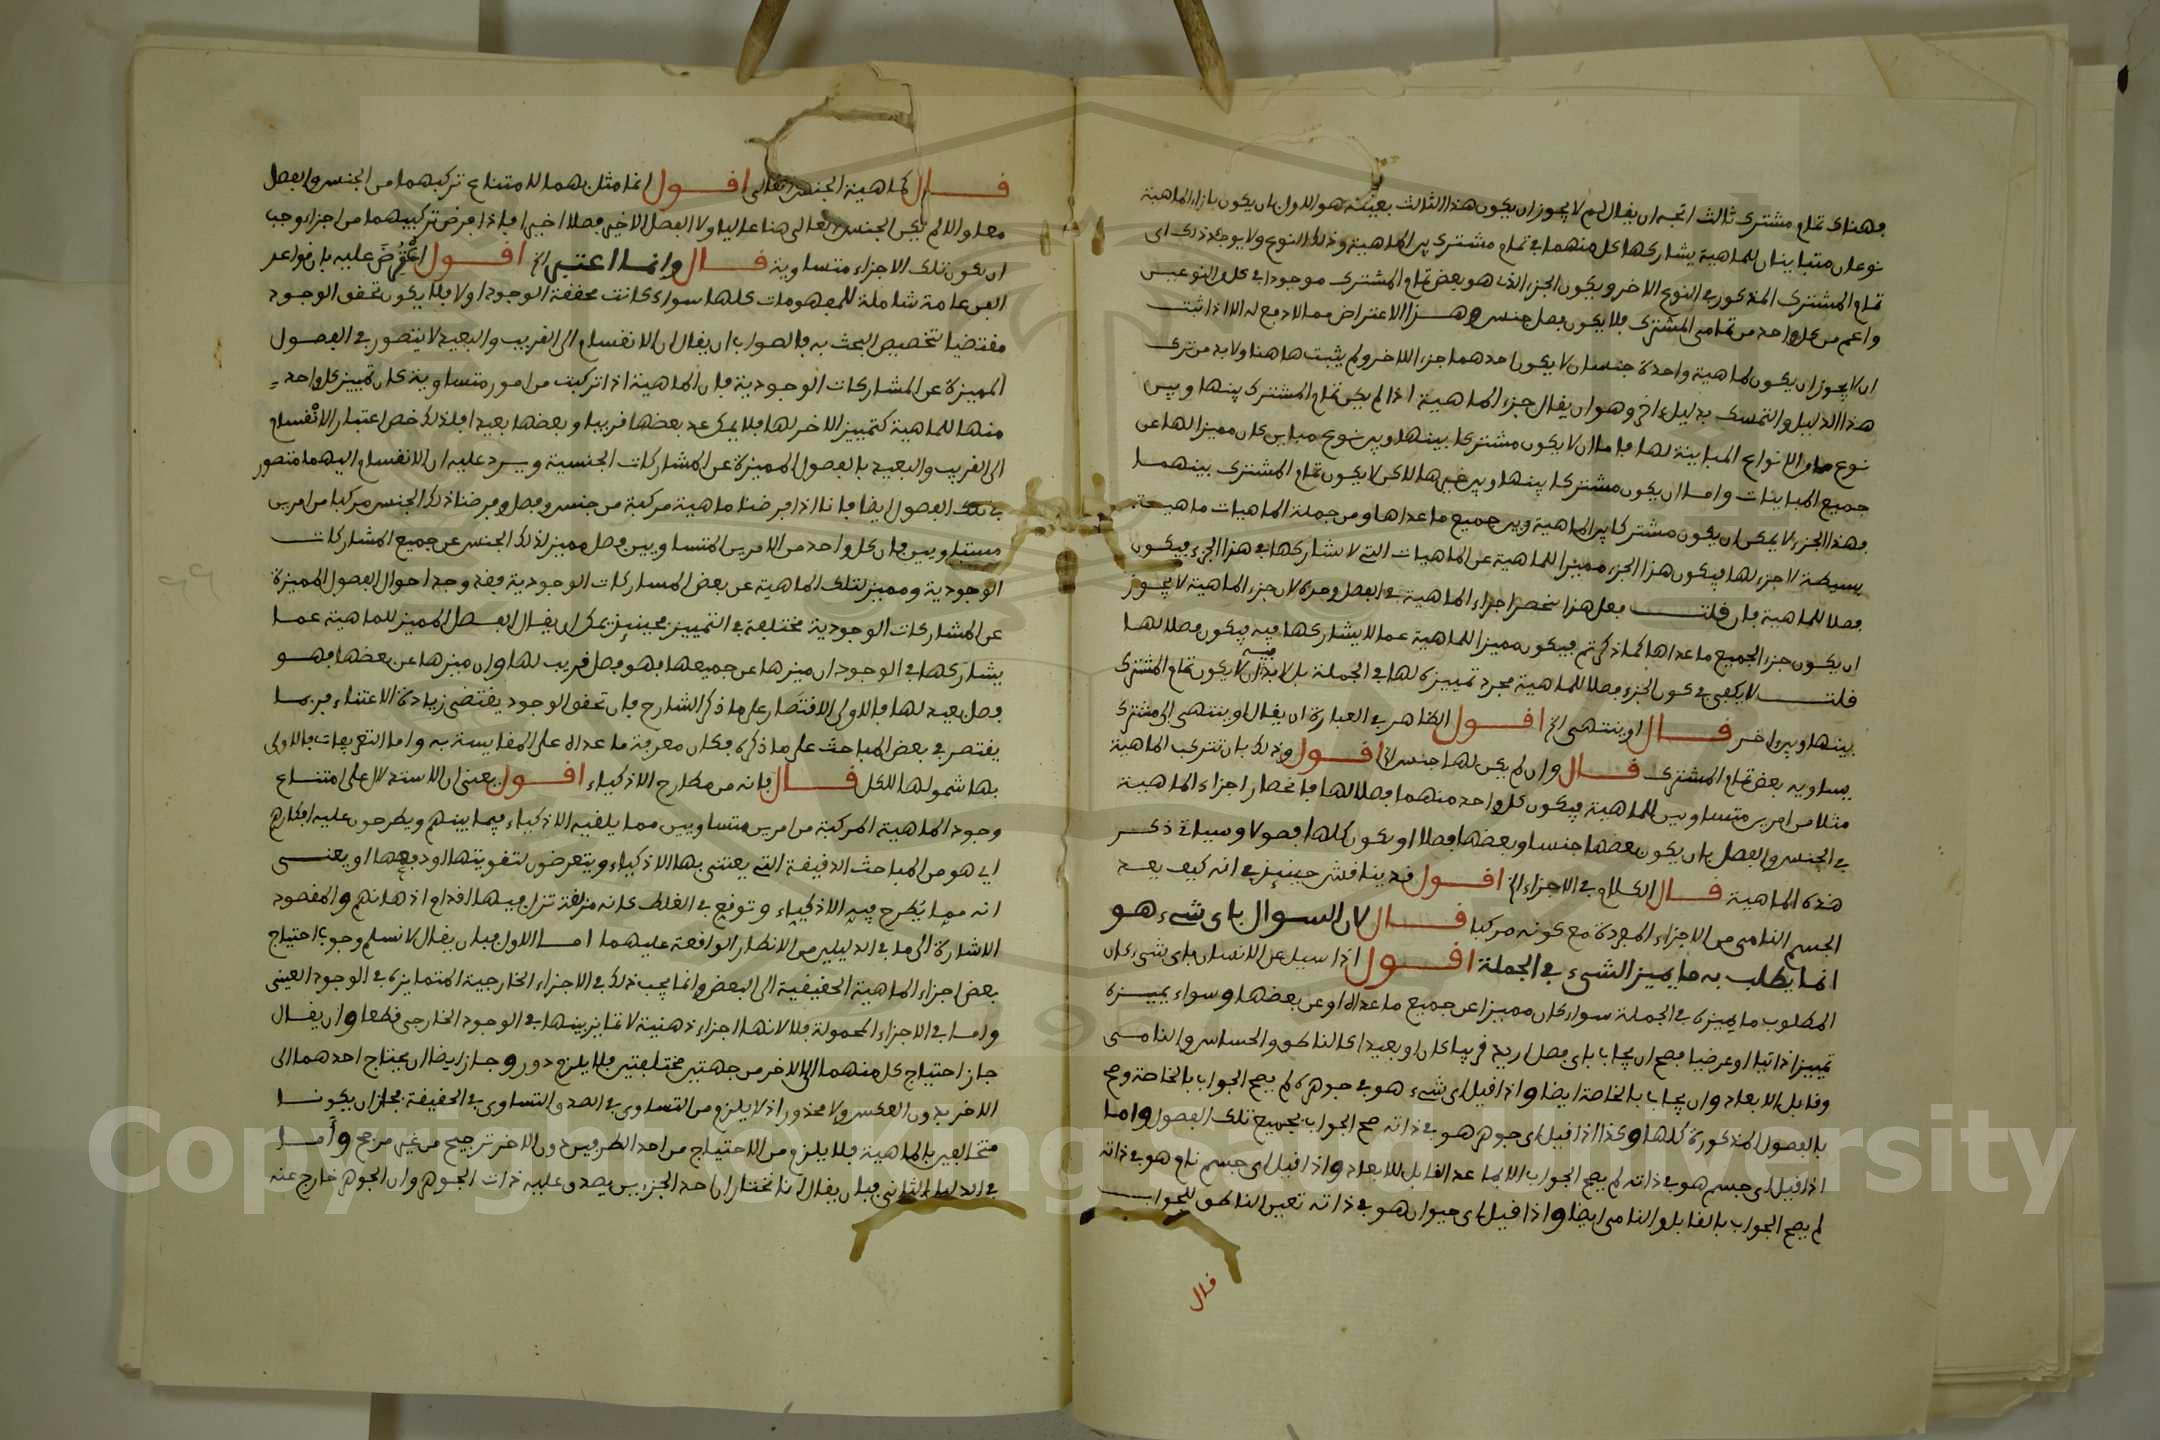 فهناك تمام مشترك ثالث اتجه ان يقال لم لا يجوز ان يكون هذا الثالث بعينه هو الاول بان يكون بازاء الماهية
نوعان متباينان للماهية يشاركها كل منهما في تمام مشترك بين الماهية وذلك النوع ولا يوجد ذلك اى
تمام المشترك المذكور في النوع الاخر ويكون الجزء الذى هو بعض تمام المشترك موجودا في كل والنوعين
واعم من كل واحد من تمامى المشترك فلا يكون فصل جنس وهـذا الاعتراض مما لا دفع له الا اذا ثبت
ان لا يجوز ان يكون لماهية واحدة جنسان لا يكون احدهما جزء اللاخر ولم يثبت هاهنا ولا بد من ترك
هذا الدليل والتمسك بدليل اخر وهو ان يقال جزء الماهية اذا لم يكن تمام المشترك بينها وبين
نوع ما من الانواع المباينة لها فاما ان لا يكون مشتركا بينها وبين نوع مباين كان مميزا لها عن
جميع المباينات واما ان يكون مشتركا بينها وبين غيرها لاكن لا يكون تمام المشترك بينهما
فهذا الجزء لا يمكن ان يكون مشتركا بين الماهية وبين جميع ما عداها ومن جملة الماهيات ماهية
بسيطة لا جزء لها فيكون هذا الجزء مميزا للماهية عن الماهيات التى لا تشاركها في هذا الجزء فيكون
فصلا للماهية فان قلت فعل هذا ينحصر اجزاء الماهية في الفصل وحده لان جزء الماهية لا يجوز
ان يكون جزء الجميع ما عداها كما ذكرتم فيكون مميزا للماهية عما لا يشاركها فيه فيكون فصلا لها
قلت لا يكفي في كون الجزء فصلا للماهية مجرد تمييزه لها في الجملة بل لا بد فيه ان لا يكون تمام المشترك
بينها وبين اخر قـال او ينتهى الخ اقـول الظاهر في العبارة ان يقال او ينتهى الى مشترك
يساويه بعض تمام المشترك قـال وان لم يكن لها جنس الخ اقـول وذلك بان تتركب الماهية
مثلا من امرين متساويين للماهية فيكون كل واحد منهما فصلا لها فانحصار اجزاء الماهية
في الجنس والفصل بان يكون بعضها جنسا وبعضها فصلا او يكون كلها فصولا وسياتى ذكر
هذه الماهية قـال الكلام في الاجزاء الخ اقـول قد يناقش حينئذ في انه كيف يعد
الجسم النامى من الاجزاء المفردة مع كونه مركبا قـال لان السوال باى شىء هو
انما يطلب به ما يميز الشىء في الجملة اقـول اذا سيل عن الانسان باى شىء كان
المطلوب ما يميزه في الجملة سواء كان مميزا عن جميع ما عداه او عن بعضها وسواء يميزه
تمييزا ذاتيا او عرضيا فصح ان يجاب باى فصل اريد قريبا كان او بعيدا كالناطق والحساس والنامى
وقابل الابعاد وان يجاب بالخاصة ايضا واذا قيل اى شىء هو في جوهره لم يصح الجواب بالخاصة وصح
بالفصول المذكورة كلها وكذا اذا قيل اى جوهر هو في ذاته صح الجواب بجميع تلك الفصول واما
اذا قيل اى جسم هو في ذاته لم يصح الجواب الا بما عدا القابل للابعاد واذا قيل اى جسم نام هو في ذاته
لم يصح الجواب بالقابل والنامى ايضا واذا قيل اى حيوان هو في ذاته تعين الناطق للجواب
قال
قـال كماهية الجنس العالى اقـول انما مثل بهما للامتناع تركبهما من الجنس والفصل
معا والا لم يكن الجنس العالى هنا عاليا ولا الفصل الاخير فصلا اخيرا فاذا فرض تركيبهما من اجزاء وجب
ان يكون تلك الاجزاء متساوية قـال وانما اعتبر الخ اقـول اعترض عليه بان قواعد
الفن عامة شاملة للمفهومات كلها سواء كانت محققة الوجود او لا فلا يكون تحقق الوجود
مقتضيا تخصيص البحث به فالصواب ان يقال ان الانقسام الى القريب والبعيد لا يتصور في الفصول
المميزة عن المشاركات الوجودية فان الماهية اذا تركبت من امور متساوية كان تمييز كل واحد
منها للماهية كتمييز الاخر لها فلا يمكن عد بعضها قريبا وبعضها بعيدا فلذلك خص اعتبار الانقسام
الى القريب والبعيد بالفصول المميزة عن المشاركات الجنسية ويرد عليه ان الانقسام اليهما متصور
في تلك الفصول ايضا فانا اذا فرضنا ماهية مركبة من جنس وفصل وفرضنا ذلك الجنس مركبا من امرين
متساويين فان كل واحد من الامرين المتساويين فصل مميز لذلك الجنس عن جميع المشاركات
الوجودية ومميز لتلك الماهية عن بعض المشاركات الوجودية فقد وجد احوال الفصول المميزة
عن المشاركات الوجودية مختلفة في التمييز فحينئذ يمكن ان يقال الفصل المميز للماهية عما
يشاركها في الوجود ان ميزها عن جميعها فهو فصل قريب لها وان ميزها عن بعضها فهو
فصل بعيد لها فالاولى الاقتصار على ما ذكر الشارح فان تحقق الوجود يقتضى زيادة الاعتناء فربما
يقتصر في بعض المباحث على ما ذكره فكان معرفة ما عداه على المقايسة به واما التعريفات فالاولى
بها شمولها للكل قـال فانه من مطارح الاذكياء اقـول يعنى ان الاستدلال على امتناع
وجود الماهية المركبة من امرين متساويين مما يلقيه الاذكياء فيما بينهم ويطرحون عليه افكارهم
اى هو من المباحث الدقيقة التى يعتنى بها الاذكياء ويتعرضون لتقويتها او دفعها او يعنى
انه مما يطرح فيه الاذكياء وتوقع في الغلط كانه مزلقة تزل فيها اقدام اذهانهم والمقصود
الاشارة الى ما في الدليلين من الانظار الواقعة عليهما امـا الاول فبان يقال لا نسلم وجوب احتياج
بعض اجزاء الماهية الحقيقية الى البعض وانما يجب ذلك في الاجزاء الخارجية المتمايزة في الوجود العينى
واما في الاجزاء المحمولة فلا لانها اجزاء ذهنية لا تمايز بينها في الوجود الخارجى قطعا وان يقال
جاز احتياج كل منهما الى الاخر من جهتين مختلفتين فلا يلزم دور وجاز ايضا ان يحتاج احدهما الى
الاخر بدون العكس ولا محذور اذ لا يلزم من التساوى في الصدق التساوى في الحقيقة فجاز ان يكونا
متخالفين بالماهية فلا يلزم من الاحتياج من احد الطرفين دون الاخر ترجيح من غير مرجح وامـا
في الدليل الثانى فبان يقال انا نختار ان احد الجزءين يصدق عليه ذات الجوهر وان الجوهر خارج عنه
Copyright © King Saud University